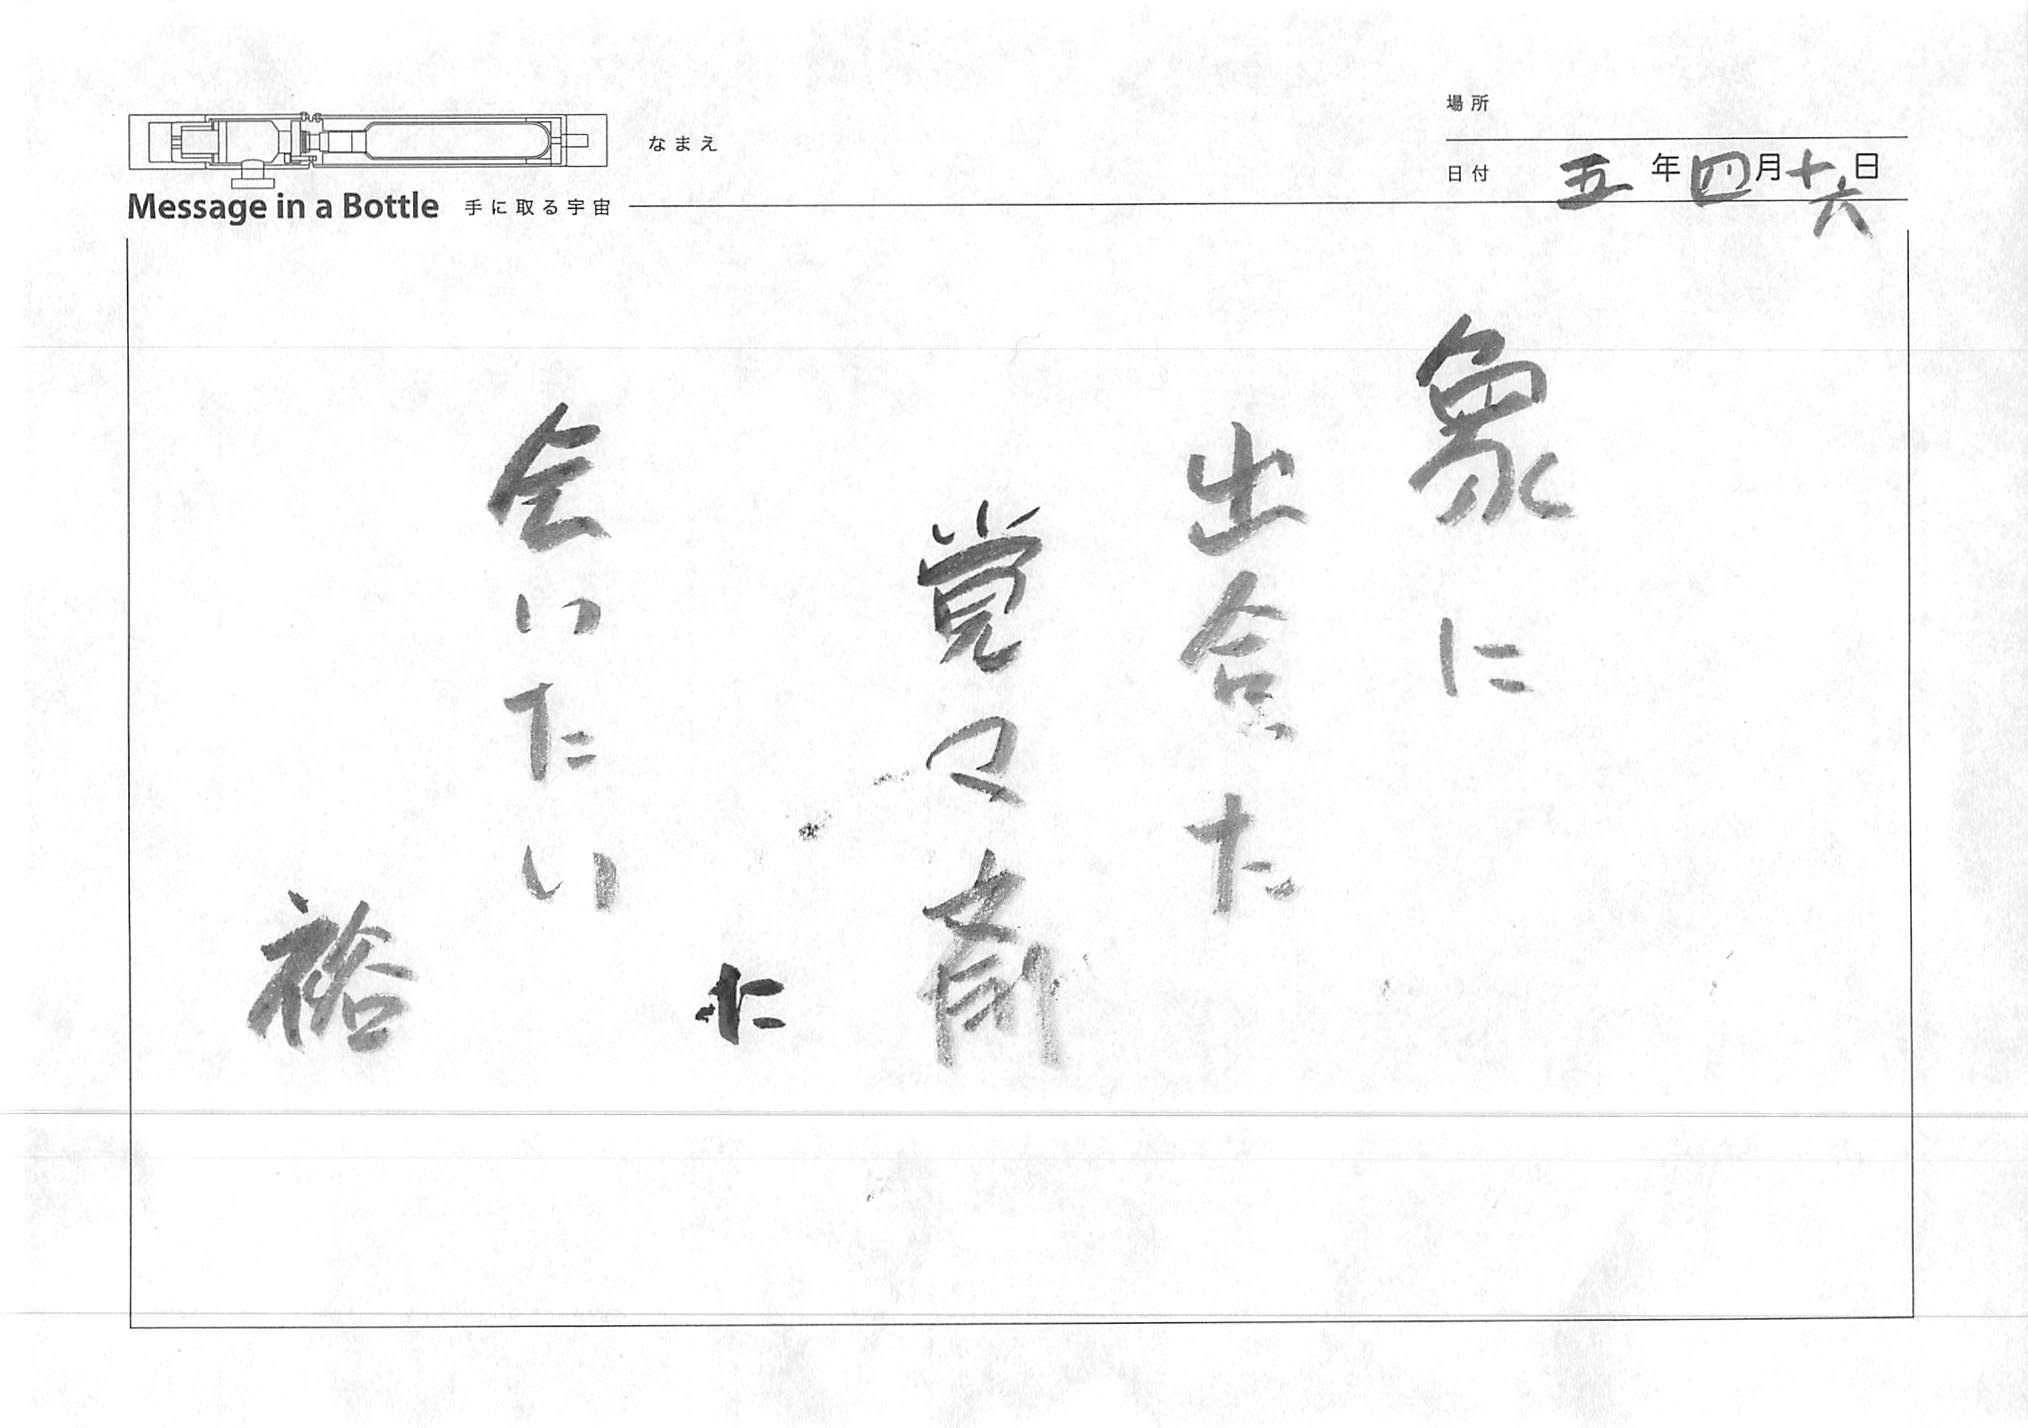 場所
なまえ
日付 五年四月十六日
Message in a Bottle 手に取る宇宙
象に
出合た
覚々斎
に
会いたい
裕